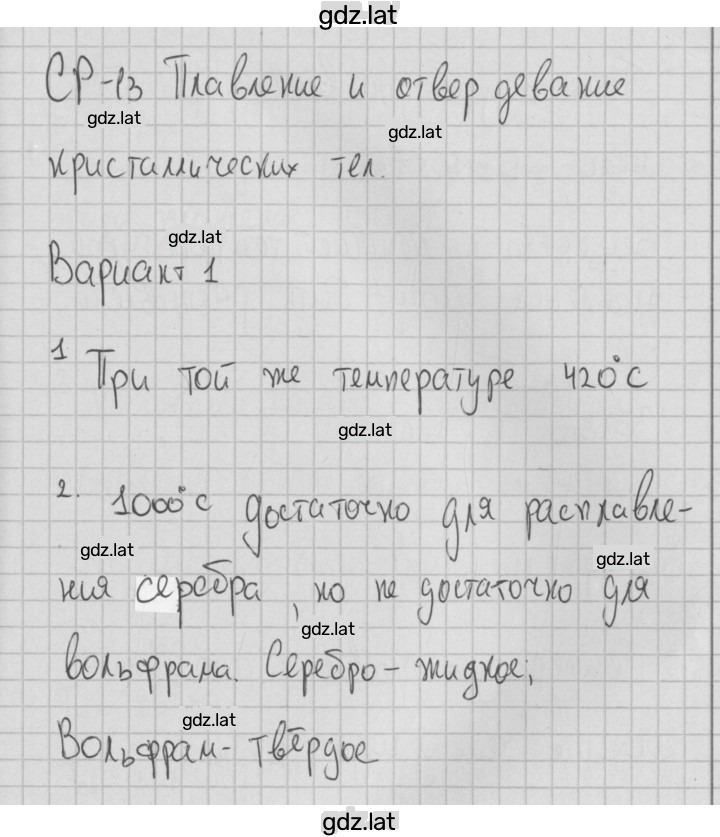 gdz.lat
СР-13 Плавление и отвердевание
gdz.lat
gdz.lat
кристаллических тел.
gdz.lat
Вариант 1
1 При той же температуре 420°С
gdz.lat
2. 1000°С достаточно для расплавле-
gdz.lat
gdz.lat
ния серебра, но не достаточно для
gdz.lat
вольфрама. Серебро - жидкое,
gdz.lat
Вольфрам - твёрдое
gdz.lat